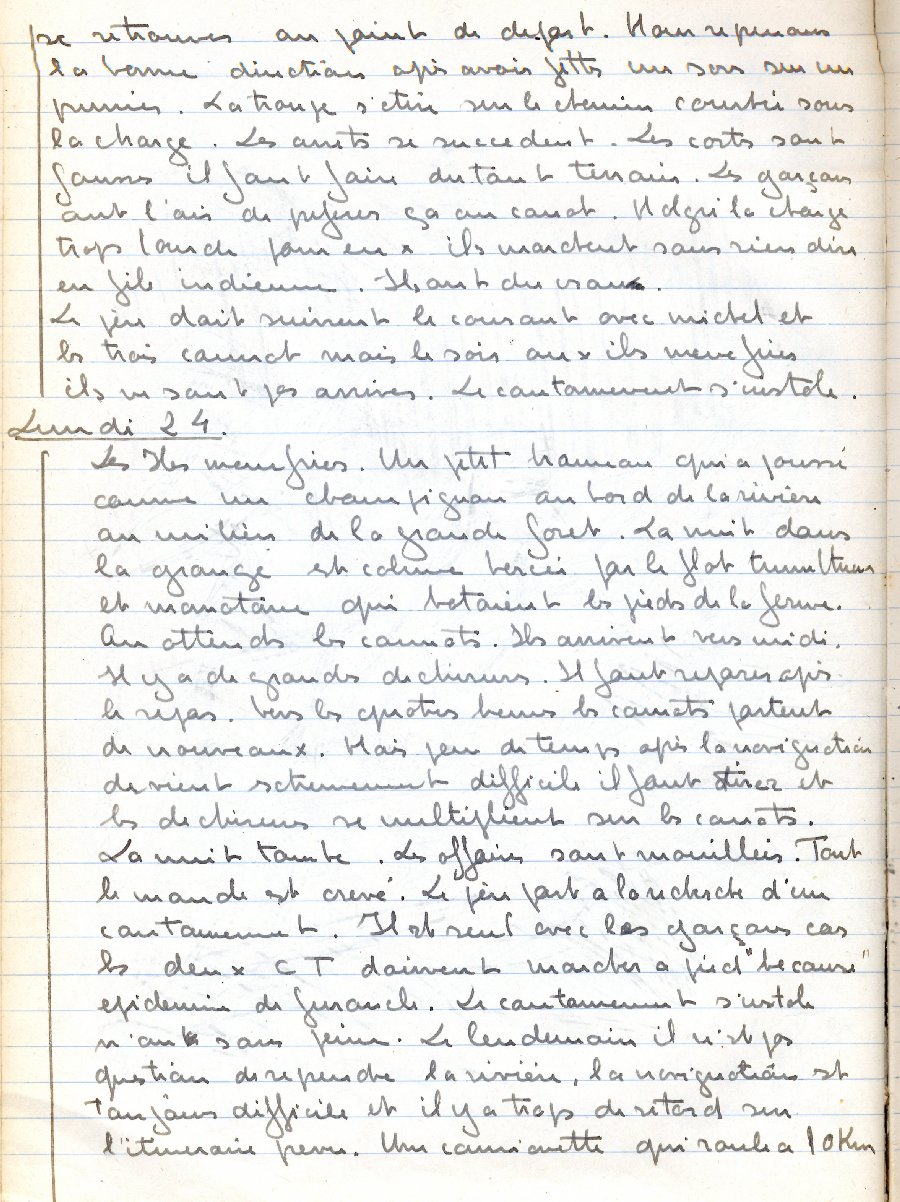 se retrouver au point de depart. Nous reprenons
la bonne direction apres avoir jetté un sors sur un
prunier. La troupe s'etire sur le chemin courbée sous
la charge. Les arrets se succedent. Les cartes sont
fausses il faut faire du tout terrain. Les garçons
ont l'air de preferer ça au canot. Malgré la charge
trops lourde pour eux ils marchent sans rien dire
en file indienne. Ils ont du
Le père doit suivrent le courant avec michel et
les trois cannot mais le soir aux iles menefrier
ils ne sont pas arrives. Le cantonnement s'installe.
Lundi 24.
Les Iles menefrier. Un petit hanneau qui a poussé
comme un champignon au bord de la rivière
au milieu de la grande foret. La nuit dans
la grange est calme bercée par le flot tumultueux
et monotone qui bataient les pieds de la ferme.
On attends les cannots. Ils arrivent vers midi.
Il y a de grandes dechirures. Il faut reparer apres
le repas. Vers les quatres heures les cannots partent
de nouveaux. Mais peu de temps après la navigation
devient extremement difficile il faut tirer et
les dechirures se multiplient sur les canots.
La nuit tombe. Les affaires sont mouillées. Tout
le monde est crevé. Le père part a la recherche d'un
cantonnement. Il est seul avec les garçons car
les deux C T doivent marcher a pied "because"
epidemie de furoncle. Le cantonnement s'installe
non sans peine. Le lendemain il n'est pas
question de reprendre la rivière, la navigation est
toujours difficile et il y a trops de retard sur
l'itineraire prevu. Une camionette qui roule a 10 Km